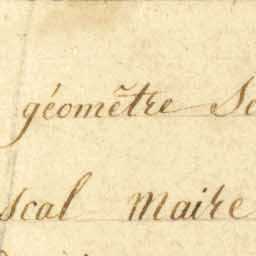 géomẽtre Se
scal Maire